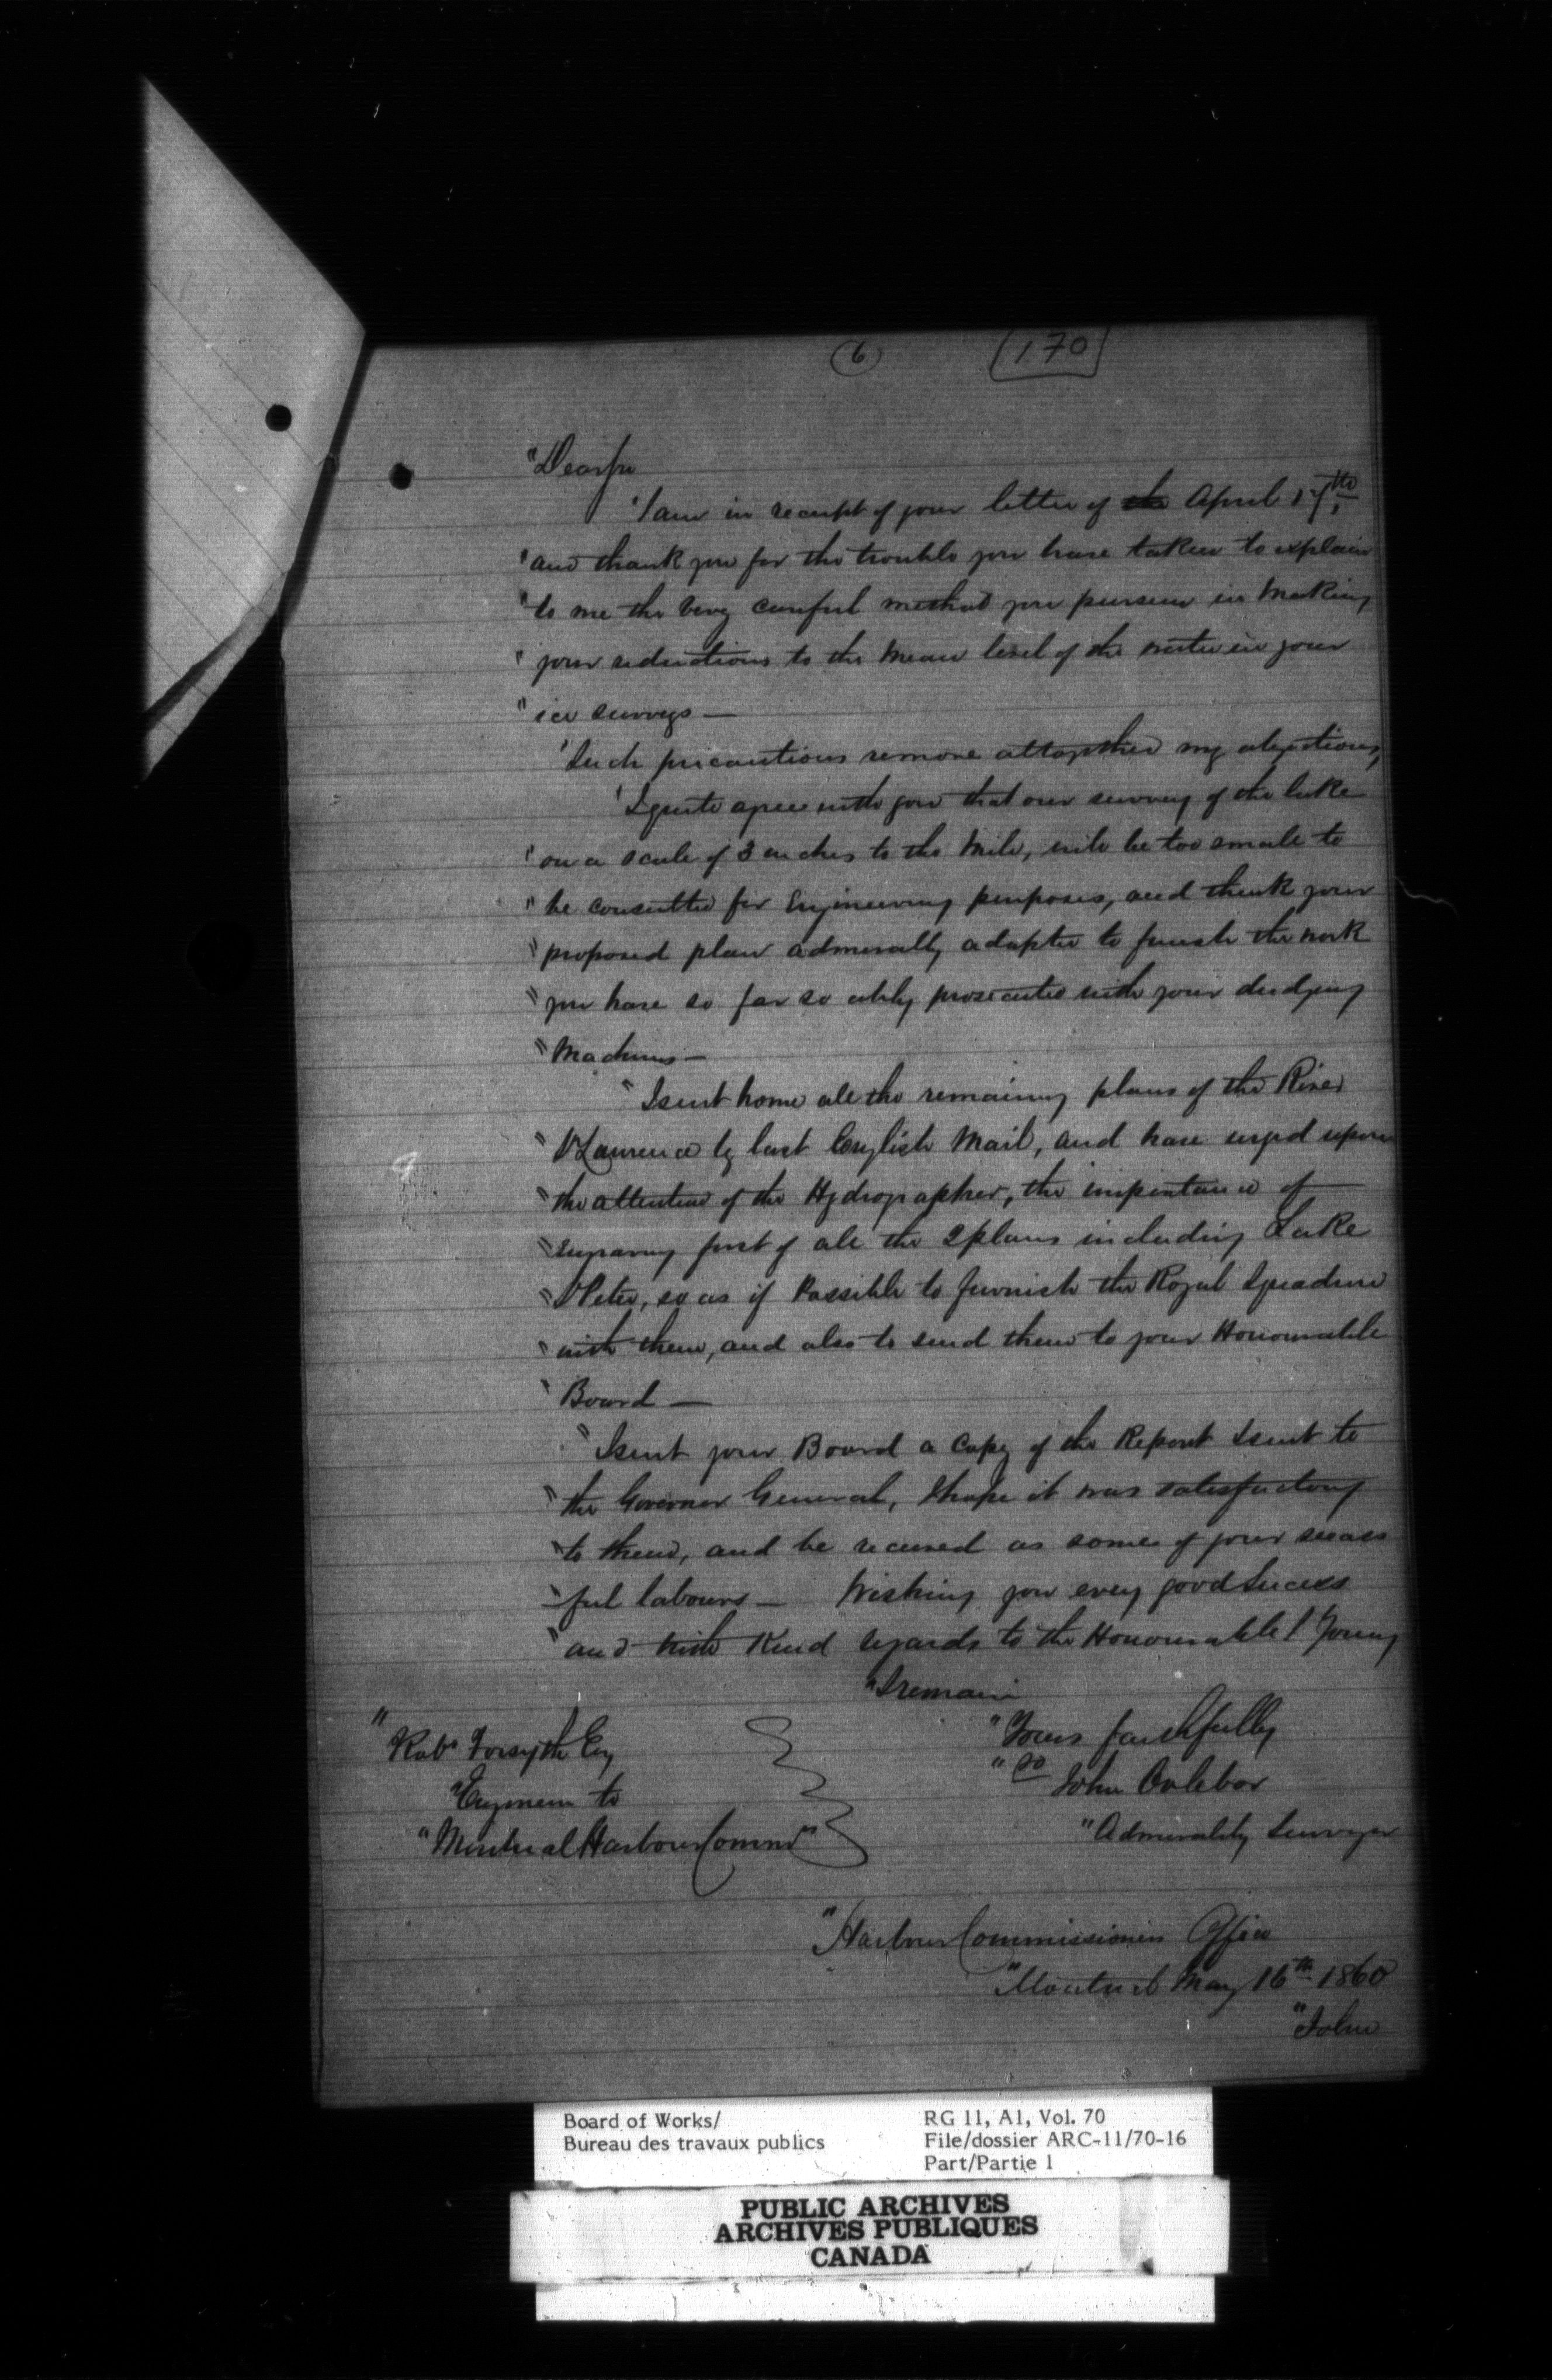 6 170
"Dear Sir
"I am in receipt of your letter of the April 17th,
"and thank you for the trouble you have taken to explain
"to me the very careful method you pursue in making
"your reductions to the mean level of the water in your
"ice surveys —
"Such precautions remove altogether my objections,
"I quite agree with you that our survey of the lake
"on a scale of 3 inches to the mile, will be too small to
"be consulted for Engineering purposes, and think your
"proposed plan admirably adapted to finish the work
"you have so far so ably prosecuted with your dredging
"Machines —
"I sent home all the remaining plans of the River
"St Lawrence by last English Mail, and have urged upon
"the attention of the Hydrographer, the importance of
"engraving first of all the 2 plans including Lake
"St Peter, so as if Possible to furnish the Royal Squadron
"with them, and also to send them to your Honourable
"Board —
"I sent your Board a Copy of the Report I sent to
"the Governor General, I hope it was satisfactory
"to them, and be received as some of your success
"ful labours — Wishing you every good Success
"and with Kind regards to the Honourable J Young
"I remain
"Yours faithfully
"Robt Forsyth Esq
"John Orlebar
"Engineer to
"Admiralty Surveyor
"Montreal Harbour Commrs"
"Harbour Commissioners Office
"Montreal May 16th 1860
"John
Board of Works/
Bureau des travaux publics
RG 11, A1, Vol. 70
File/dossier ARC-11/70-16
Part/Partie 1
PUBLIC ARCHIVES
ARCHIVES PUBLIQUES
CANADA